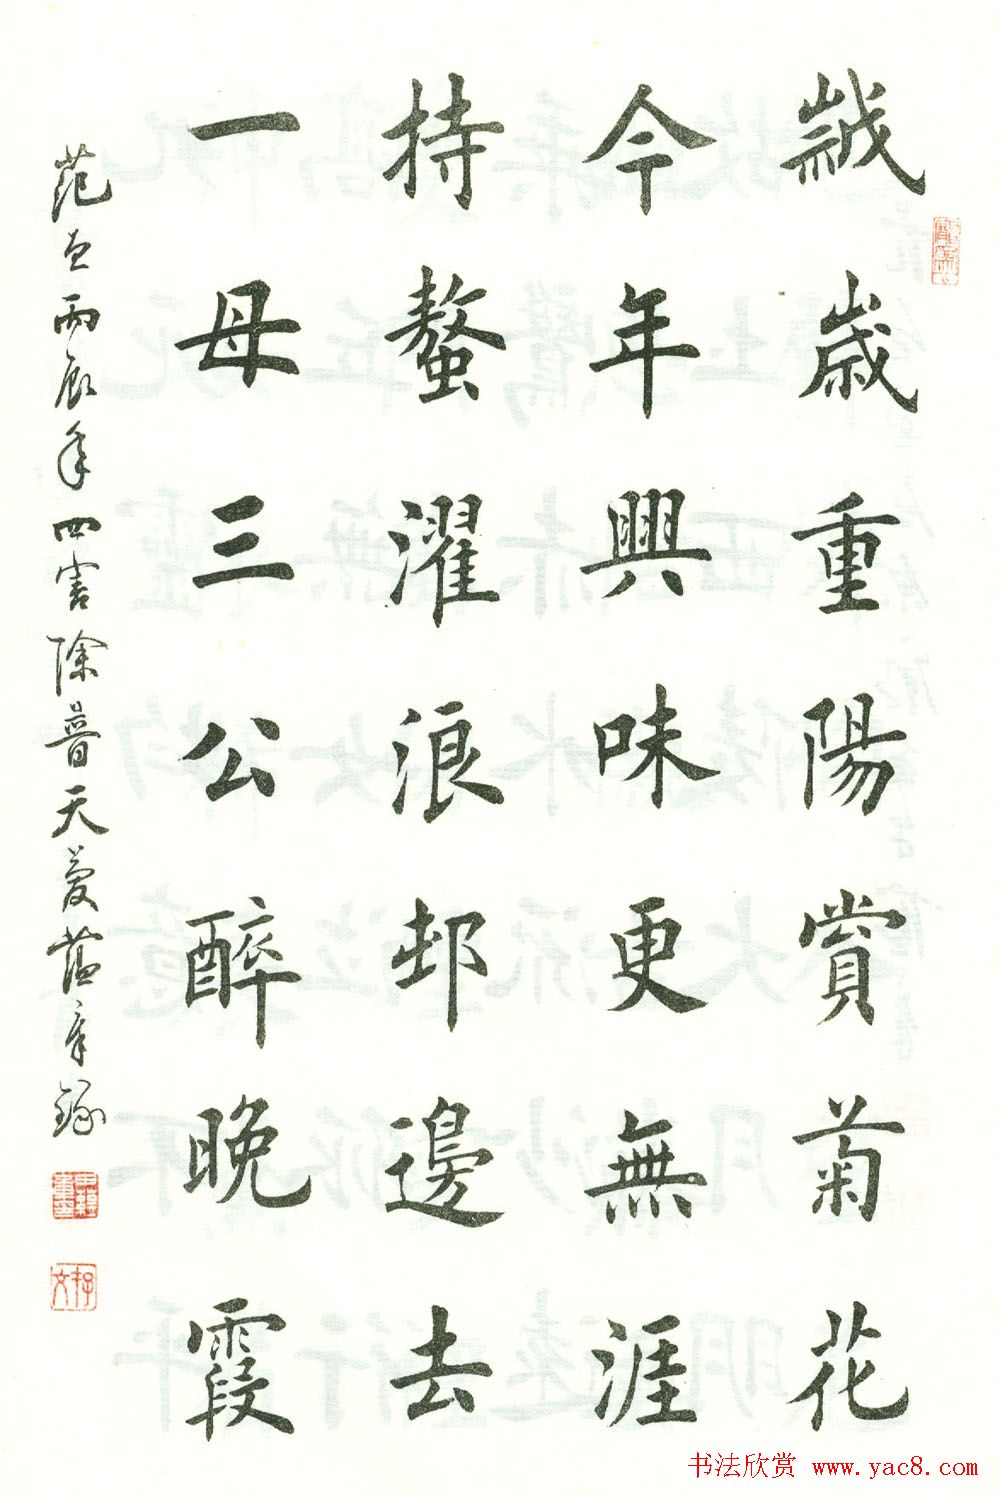 歲歲重陽賞菊花
今年興味更無涯
持螯濯浪邨邊去
一母三公醉晚霞
范 丙辰年四害除普天慶蘊章錄
书法欣赏 www.yac8.com